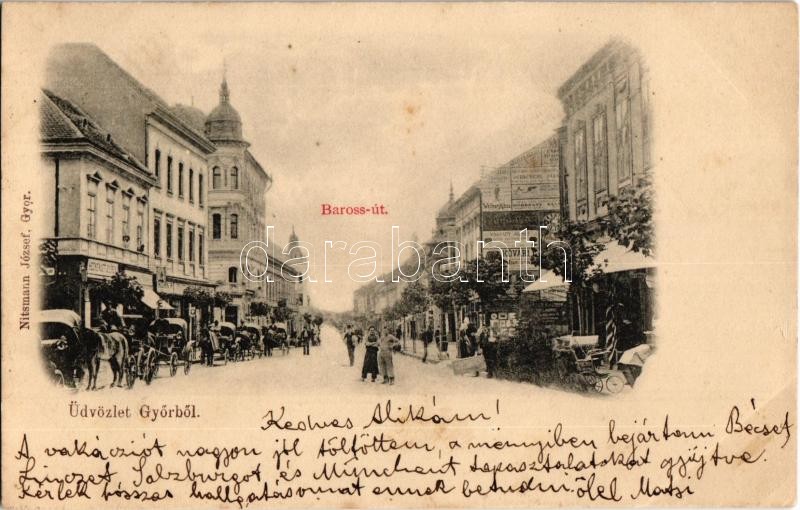 Baross-út.
darabanth.
Nitsmann József, Győr.
Üdvözlet Győrből.
Kedves Alikám!
A vakácziót nagyon jól töltöttem, a mennyiben bejártam Bécset
Linczet Salzburgot és Münchent tapasztalatokat gyűjtve.
Kérlek hosszas hallgatásomat ennek betudni. ölel Matsi